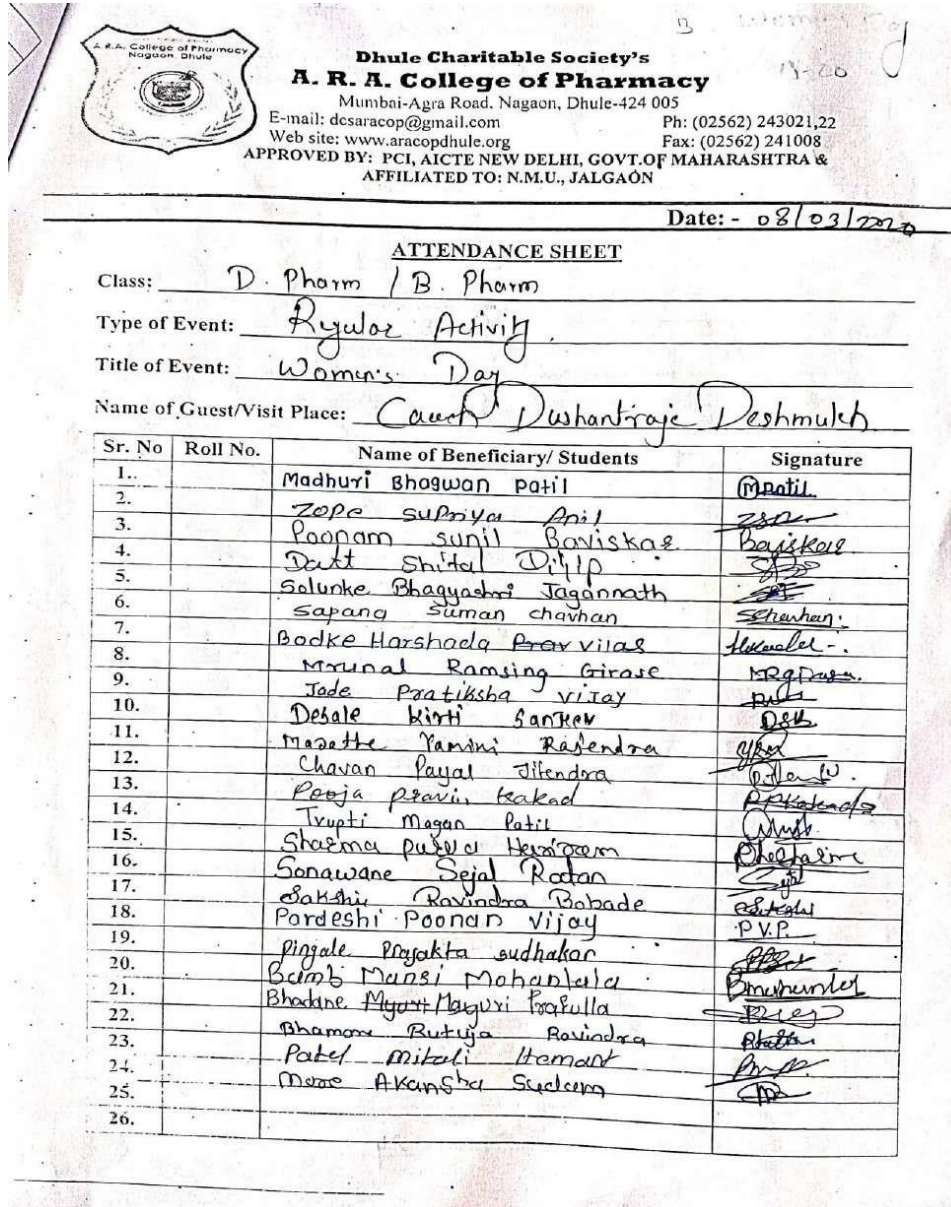 A.R.A. College of Pharmacy
Nagaon, Dhule
Dhule Charitable Society's
A. R. A. College of Pharmacy
Mumbai-Agra Road, Nagaon, Dhule-424 005
E-mail: dcsaracop@gmail.com Ph: (02562) 243021,22
Web site: www.aracopdhule.org Fax: (02562) 241008
APPROVED BY: PCI, AICTE NEW DELHI, GOVT.OF MAHARASHTRA &
AFFILIATED TO: N.M.U., JALGAON
Date: - 08/03/2020
ATTENDANCE SHEET
Class: D. Pharm / B. Pharm
Type of Event: Regular Activity
Title of Event: Women's Day
Name of Guest/Visit Place: Dushantraje Deshmukh
Sr. No Roll No. Name of Beneficiary/ Students Signature
1. Madhuri Bhagwan Patil MPatil
2. Zope Supriya Anil
3. Poonam Sunil Baviskar Baviskar
4. Datt Shital Dilip
5. Solunke Bhagyashri Jagannath
6. Sapana Suman Chavhan
7. Bodke Harshada Prav Vilas
8. Mrunal Ramsing Girase
9. Jade Pratiksha Vijay
10. Desale Kirti Sanjev
11. Marathe Yamini Rajendra
12. Chavan Payal Jitendra
13. Pooja Pravin Kakad
14. Trupti Magan Patil
15. Sharma Purva Hariom
16. Sonawane Sejal Ratan
17. Sakshi Ravindra Bobade
18. Pardeshi Poonan Vijay P.V.P.
19. Pinjale Prajakta Sudhakar
20. Bamb Mansi Mohanlala
21. Bhadane Myuri Mayuri Prafulla
22. Bhamare Rutuja Ravindra
23. Patel Mitali Hemant
24. More Akansha Sudam
25.
26.